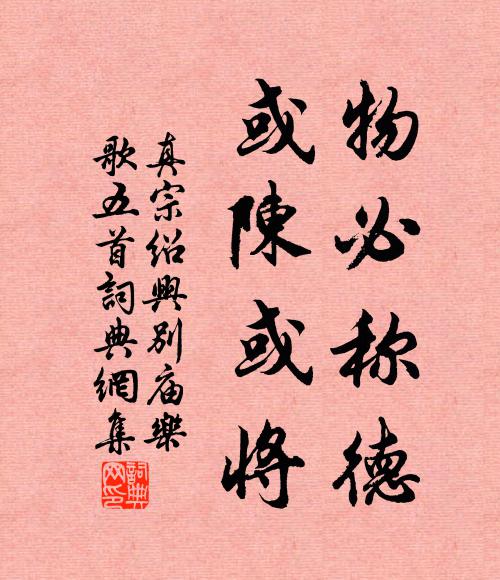 物必称德
或陳或將
真宗紹興別庙樂
歌五首詞典網集
詞典網印